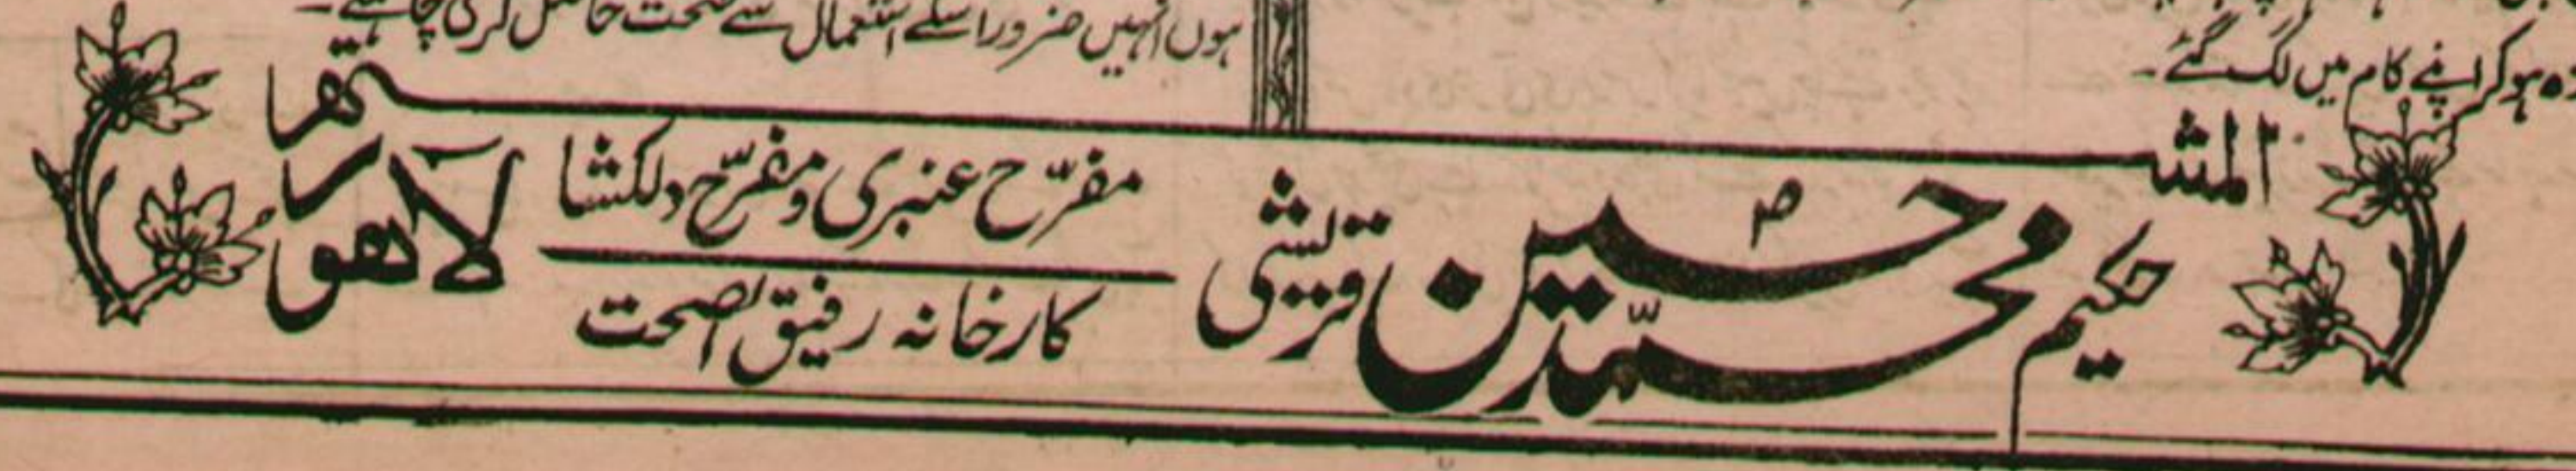 ہوکر اپنے کام میں لگ گئے۔
ہوں انہیں ضرور اسکے استعمال سے صحت حاصل کرنی چاہئے۔
المشتھر
حکیم محمد حسین قریشی
مفرّح عنبری و مفرّح دلکشا
کارخانہ رفیق الصحت
لاھور